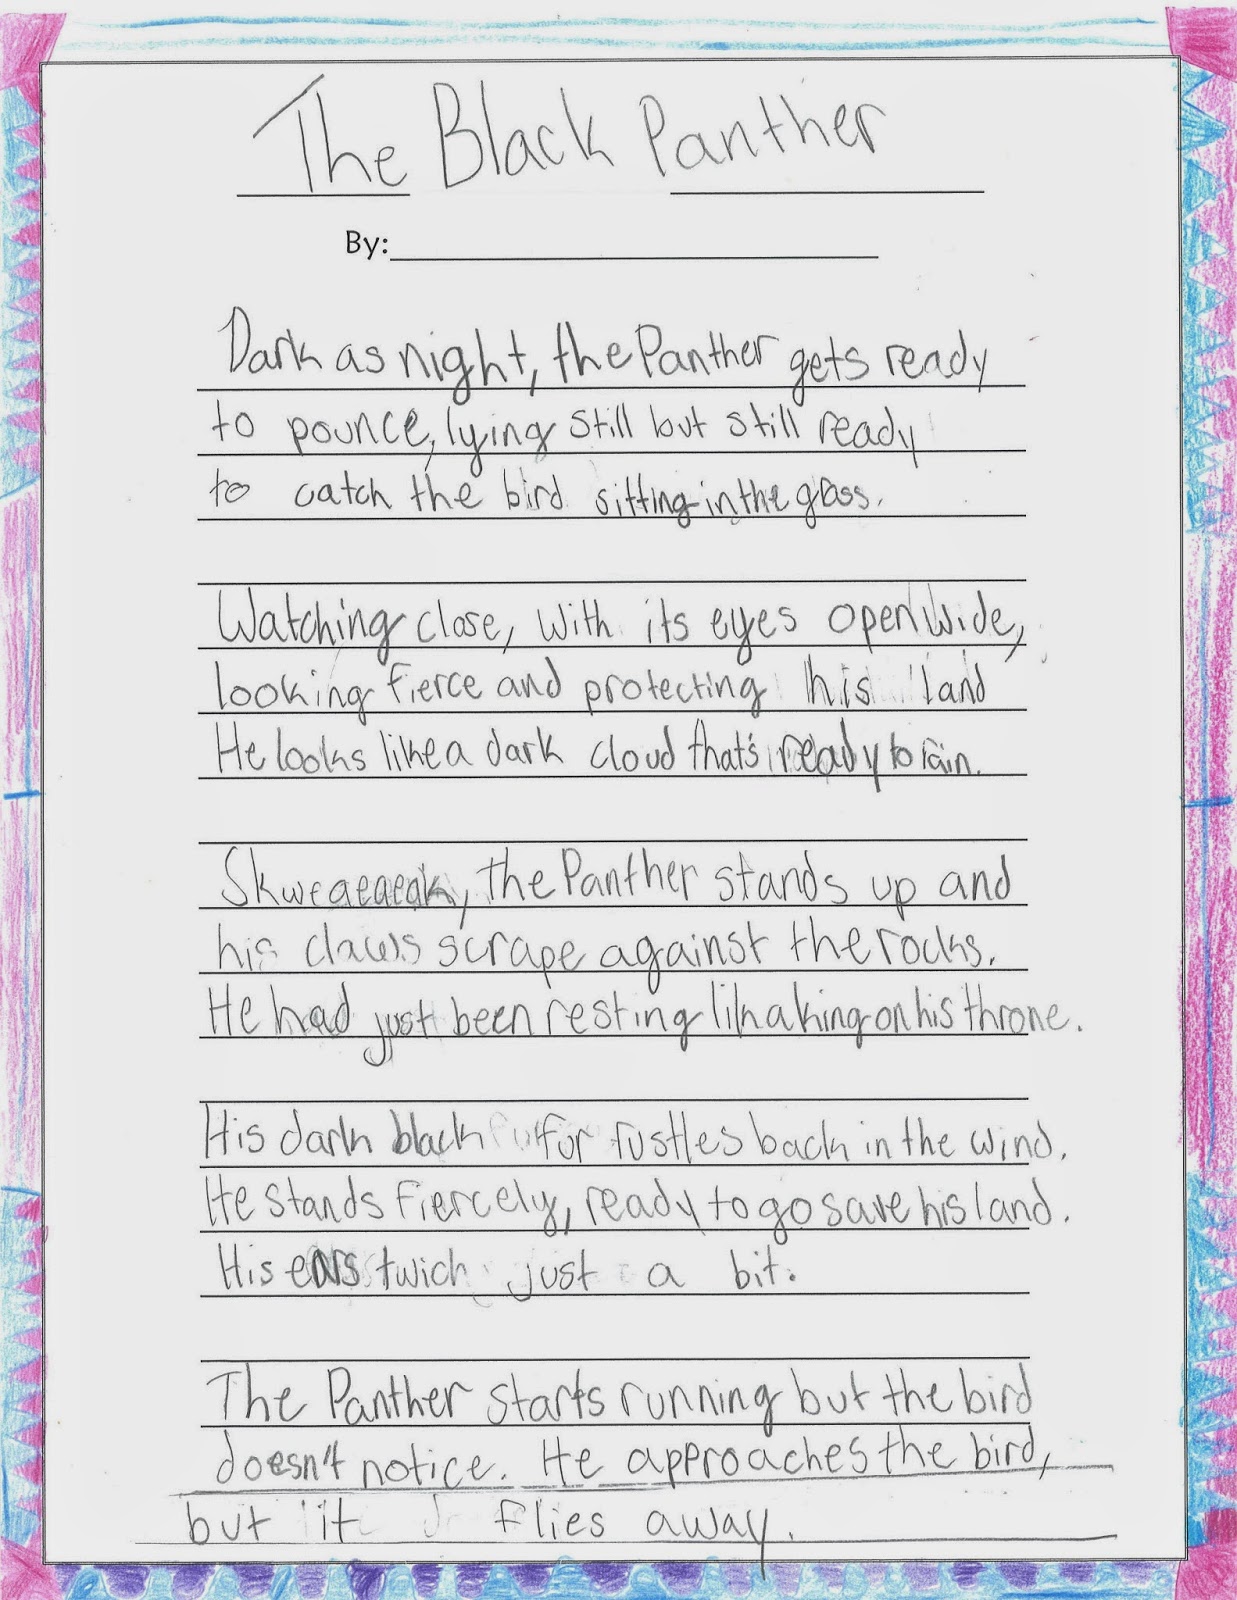 The Black Panther
By:
Dark as night, the Panther gets ready
to pounce, lying still but still ready
to catch the bird sitting in the grass.
Watching close, with its eyes open wide,
looking fierce and protecting his land
He looks like a dark cloud that's ready to rain.
Skweaeaeak, the Panther stands up and
his claws scrape against the rocks.
He had just been resting lik a king on his throne.
His dark black fur rustles back in the wind.
He stands fiercely, ready to go save his land.
His ears twich just a bit.
The Panther starts running but the bird
doesn't notice. He approaches the bird,
but it flies away.